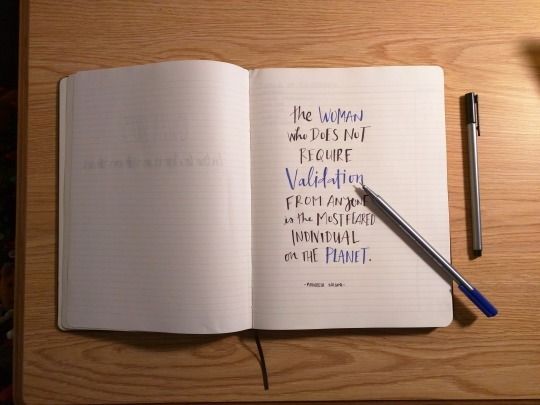 the WOMAN
who DOES NOT
REQUIRE
Validation
FROM ANYONE
is the MOST FEARED
INDIVIDUAL
on THE PLANET.